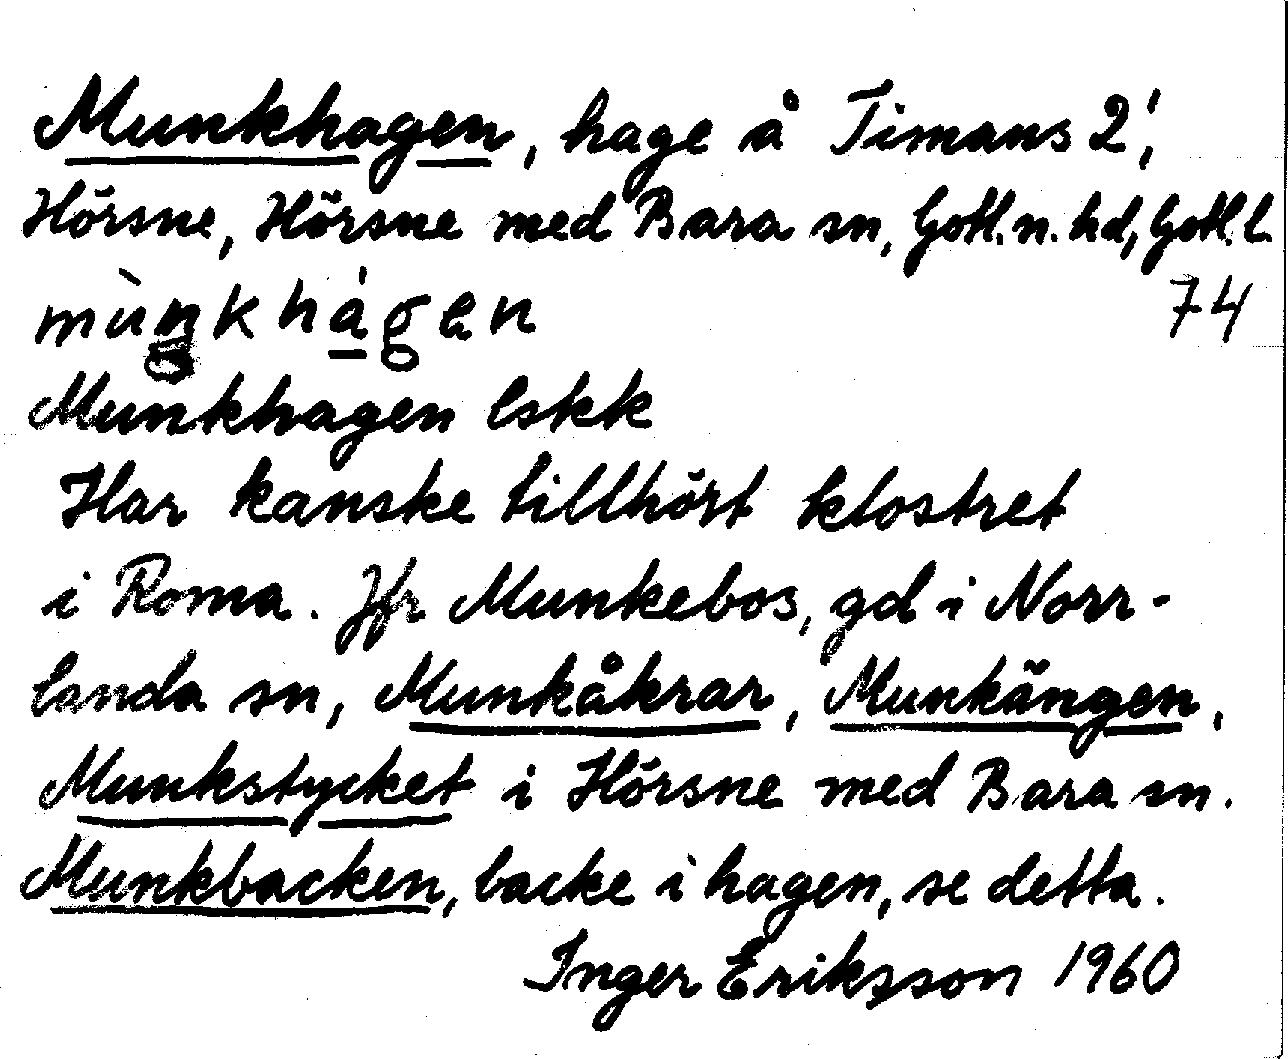 Munkhagen, hage å Timans 2',
Hörsne, Hörsne med Bara sn, Gotl. n. hd, Gotl. l.
mùnkhágen
74
Munkhagen Eskk
Har kanske tillhört klostret
i Roma. Jfr Munkebos, gd i Norr-
landa sn, Munkåkrar, Munkängen,
Munkstycket i Hörsne med Bara sn.
Munkbacken, backe i hagen, se detta.
Inger Eriksson 1960